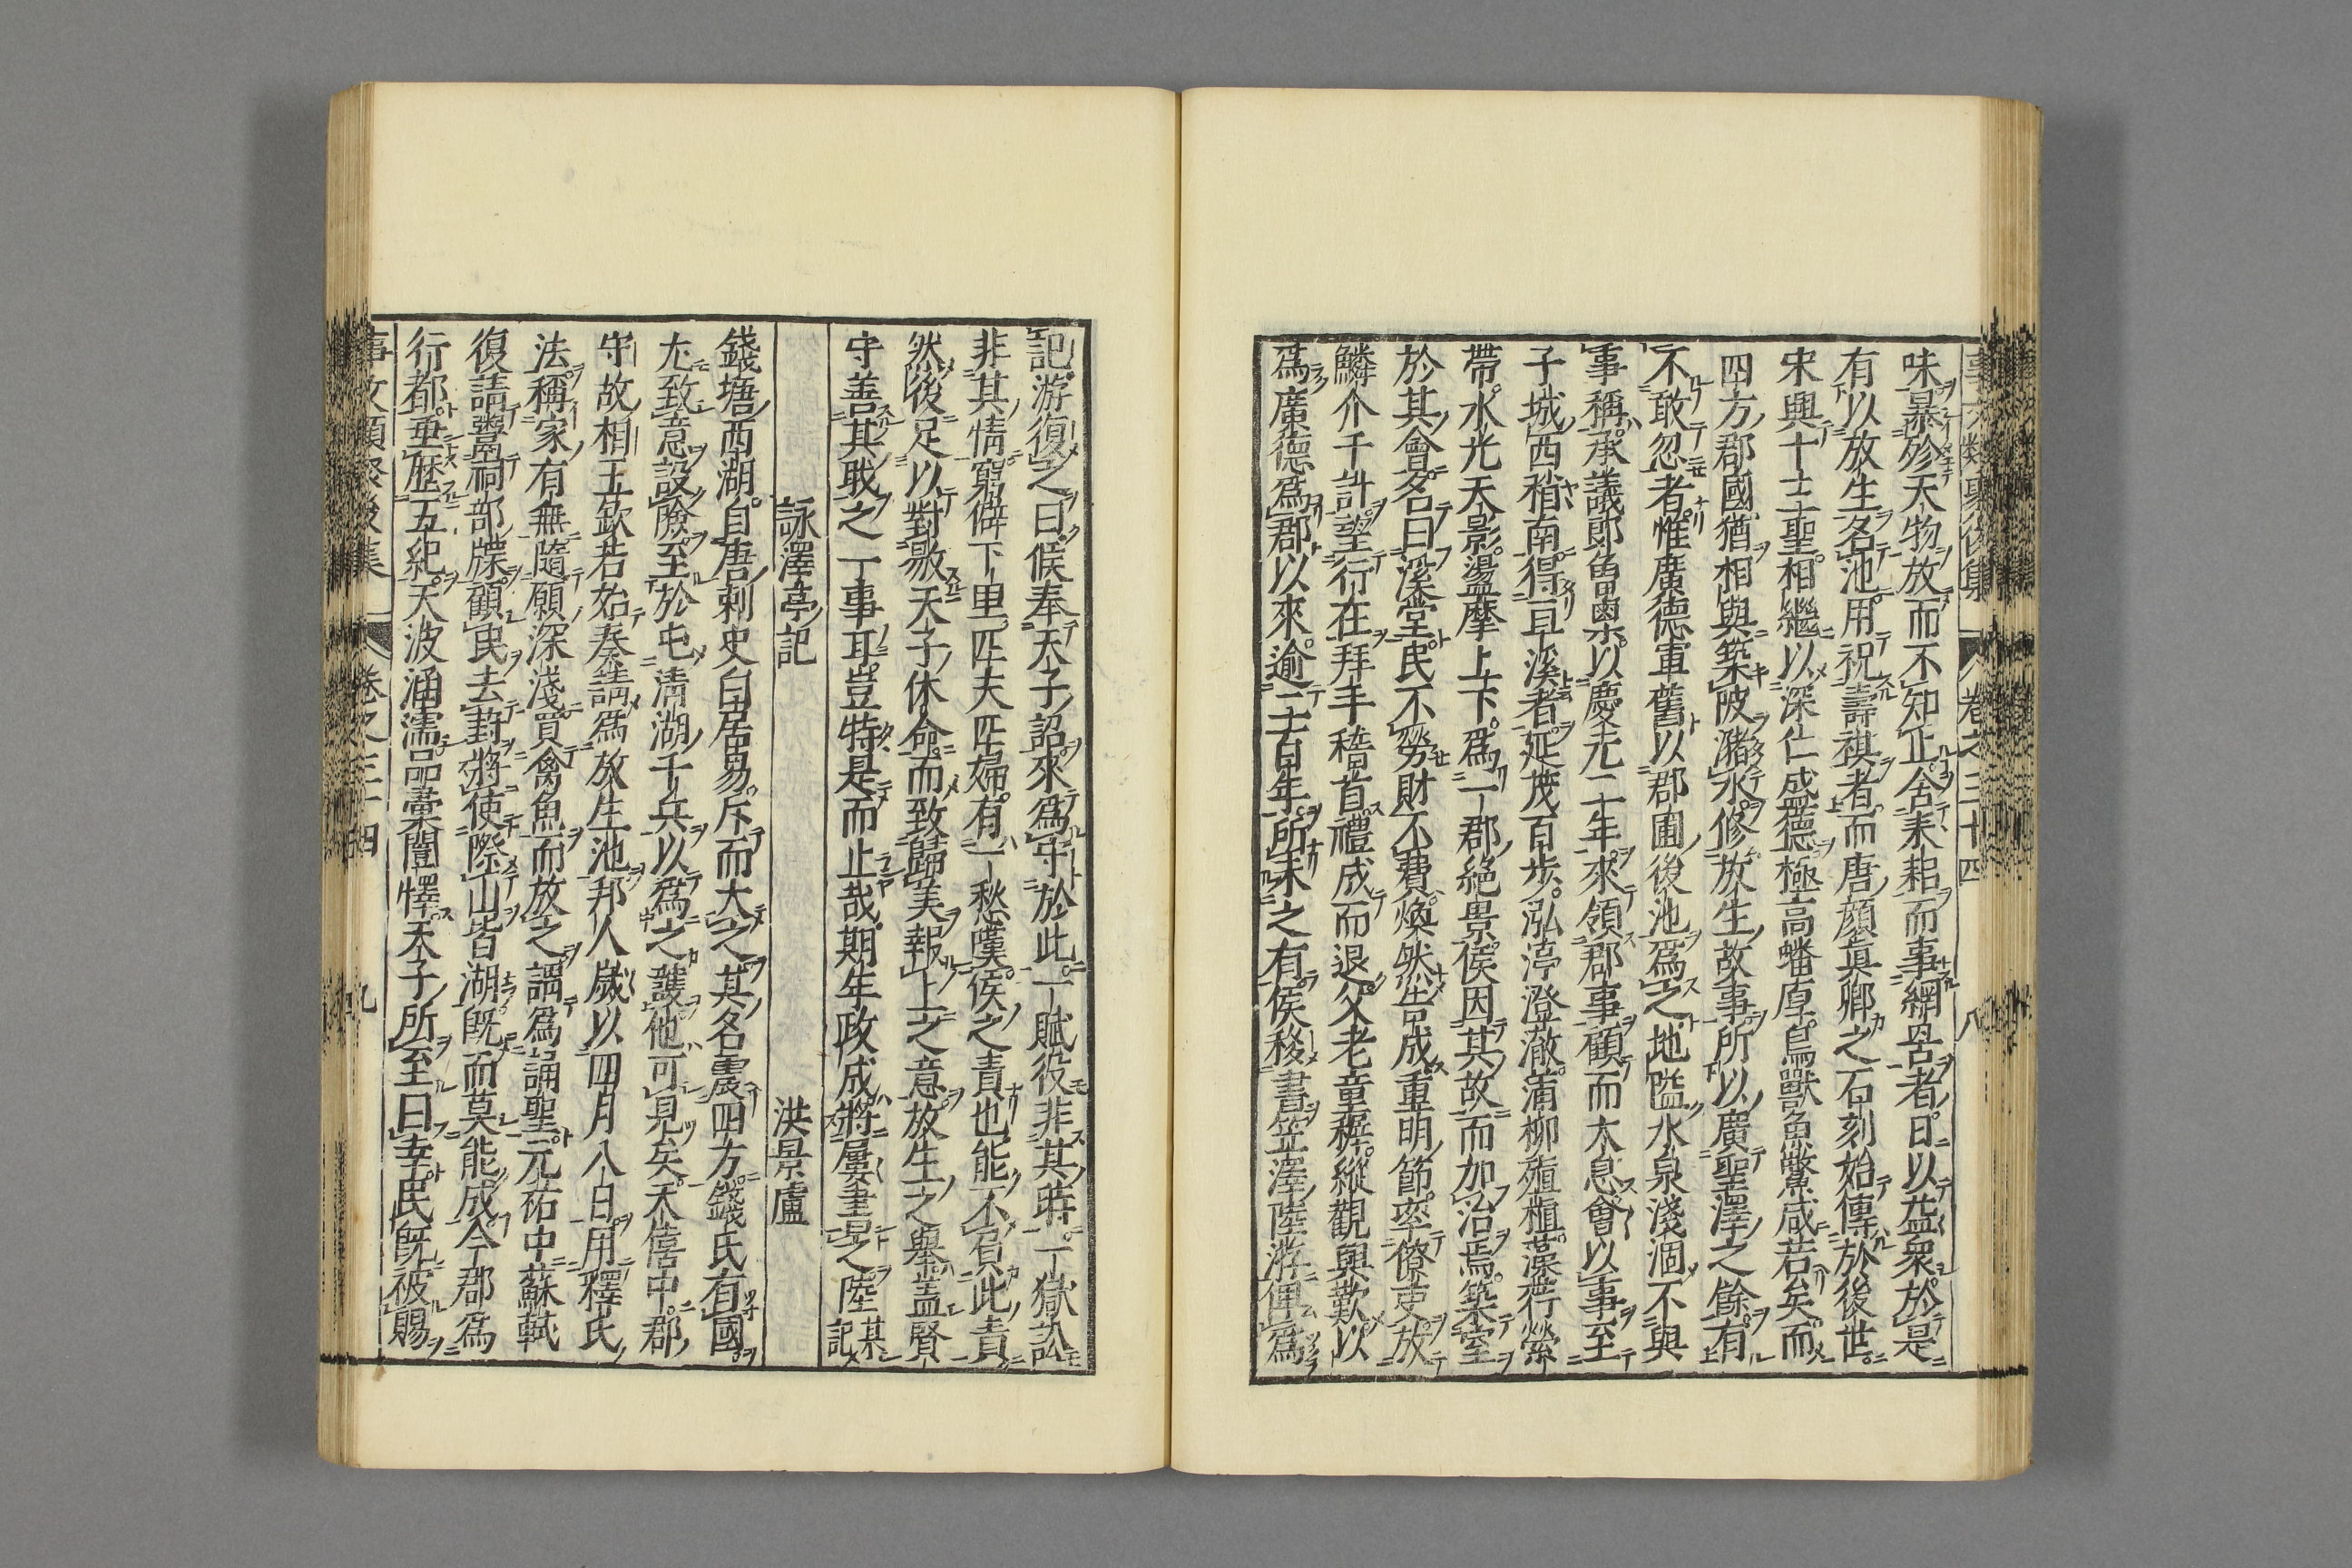 味暴殄天物放而不知止舍耒耜而事網罟者日以益衆於是
有以放生名池用祝壽祺者而唐顔眞卿之石刻始傳於後世
宋興十士聖相繼以深仁盛德極高蟠厚鳥獸魚鱉咸若矣而
四方郡國猶相與築陂瀦水修放生故事所以廣聖澤之餘有
不敢忽者惟廣德軍舊以郡圃後池爲之地隘水泉淺涸不與
事稱承議郎曾㮚以慶元二年來領郡事顧而太息會以事至
子城西稍南得亘溪者延茂百步泓渟澄澈蒲柳殖植藻荇縈
帶水光天影盪摩上下爲一郡絶景侯因其故而加治焉築室
於其會名曰溪堂民不勞財不費煥然告成重明節率僚吏放
鱗介千計望行在拜手稽首禮成而退父老童穉縱觀興歎以
爲廣德爲郡以來逾二百年所未之有侯移書笠澤陸游俾爲
記游復之曰侯奉天子詔來爲守於此一賦役非其時一獄訟
非其情窮僻下里匹夫匹婦有一愁嘆侯之責也能不負此責
然後足以對敭天子休命而致歸美報上之意放生之舉蓋賢
守善其職之一事耳豈特是而止哉期年政成將屢書之陸某記
詠澤亭記 洪景盧
錢塘西湖自唐刺史白居易斥而大之其名震四方錢氏有國
尤致意設險至於屯淸湖千兵以爲之護他可見矣天僖中郡
守故相王欽若始奏請爲放生池邦人歲以四月八日用釋氏
法稱家有無隨願深淺買禽魚而放之謂爲誦聖元祐中蘇軾
復請鬻祠部牒顧民去葑將使際山皆湖旣而莫能成今郡爲
行都垂歷五紀天波涵濡品彙闓懌天子所至曰幸民旣被賜
事文類聚後集 卷之三十四 八
事文類聚後集 卷之三十四 九